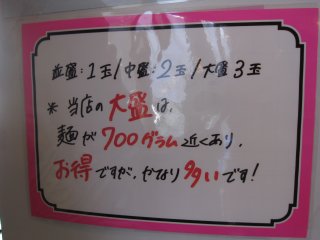 並盛:1玉/中盛:2玉/大盛3玉
※当店の大盛は、
麺が700グラム近くあり、
お得ですが、かなり多いです!